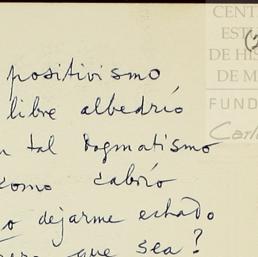 CENT
EST
DE HIS
DE M
FUND
Carl
positivismo
libre albedrío
n tal Dogmatismo
como
o dejarme echado
que sea?